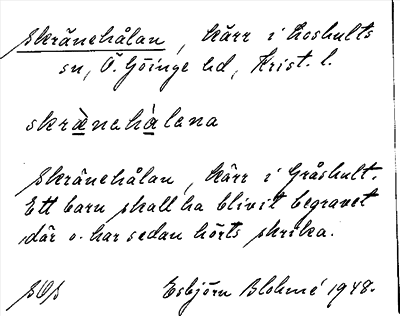 Skränehålan, kärr i Loshults
sn, Ö. Göinge hd, Krist. l.
skrànehàlana
Skränehålan, kärr i Gråshult.
Ett barn skall ha blivit begravet
där o. har sedan hörts skrika.
SOS Esbjörn Blohmé 1948.